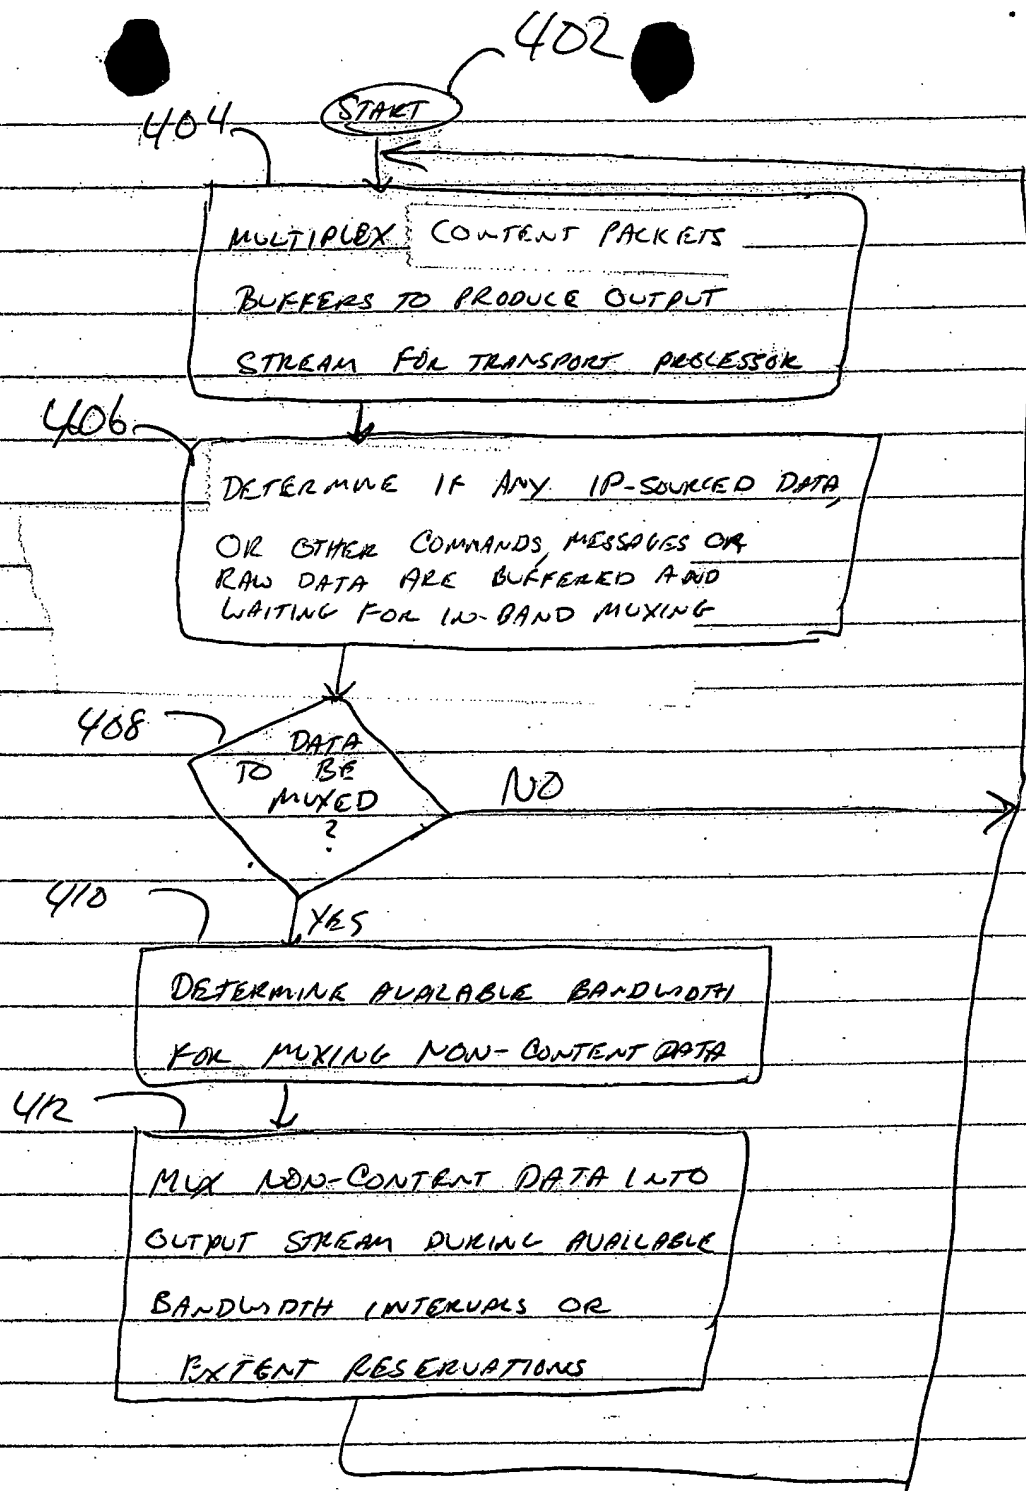 402
START
404
MULTIPLEX CONTENT PACKETS
BUFFERS TO PRODUCE OUTPUT
STREAM FOR TRANSPORT PROCESSOR
406
DETERMINE IF ANY IP-SOURCED DATA,
OR OTHER COMMANDS, MESSAGES OR
RAW DATA ARE BUFFERED AND
WAITING FOR IN-BAND MUXING
408
DATA
TO BE
MUXED
?
NO
410
YES
DETERMINE AVALABLE BANDWIDTH
FOR MUXING NON-CONTENT DATA
412
MUX NON-CONTENT DATA INTO
OUTPUT STREAM DURING AVAILABLE
BANDWIDTH INTERVALS OR
EXTENT RESERVATIONS